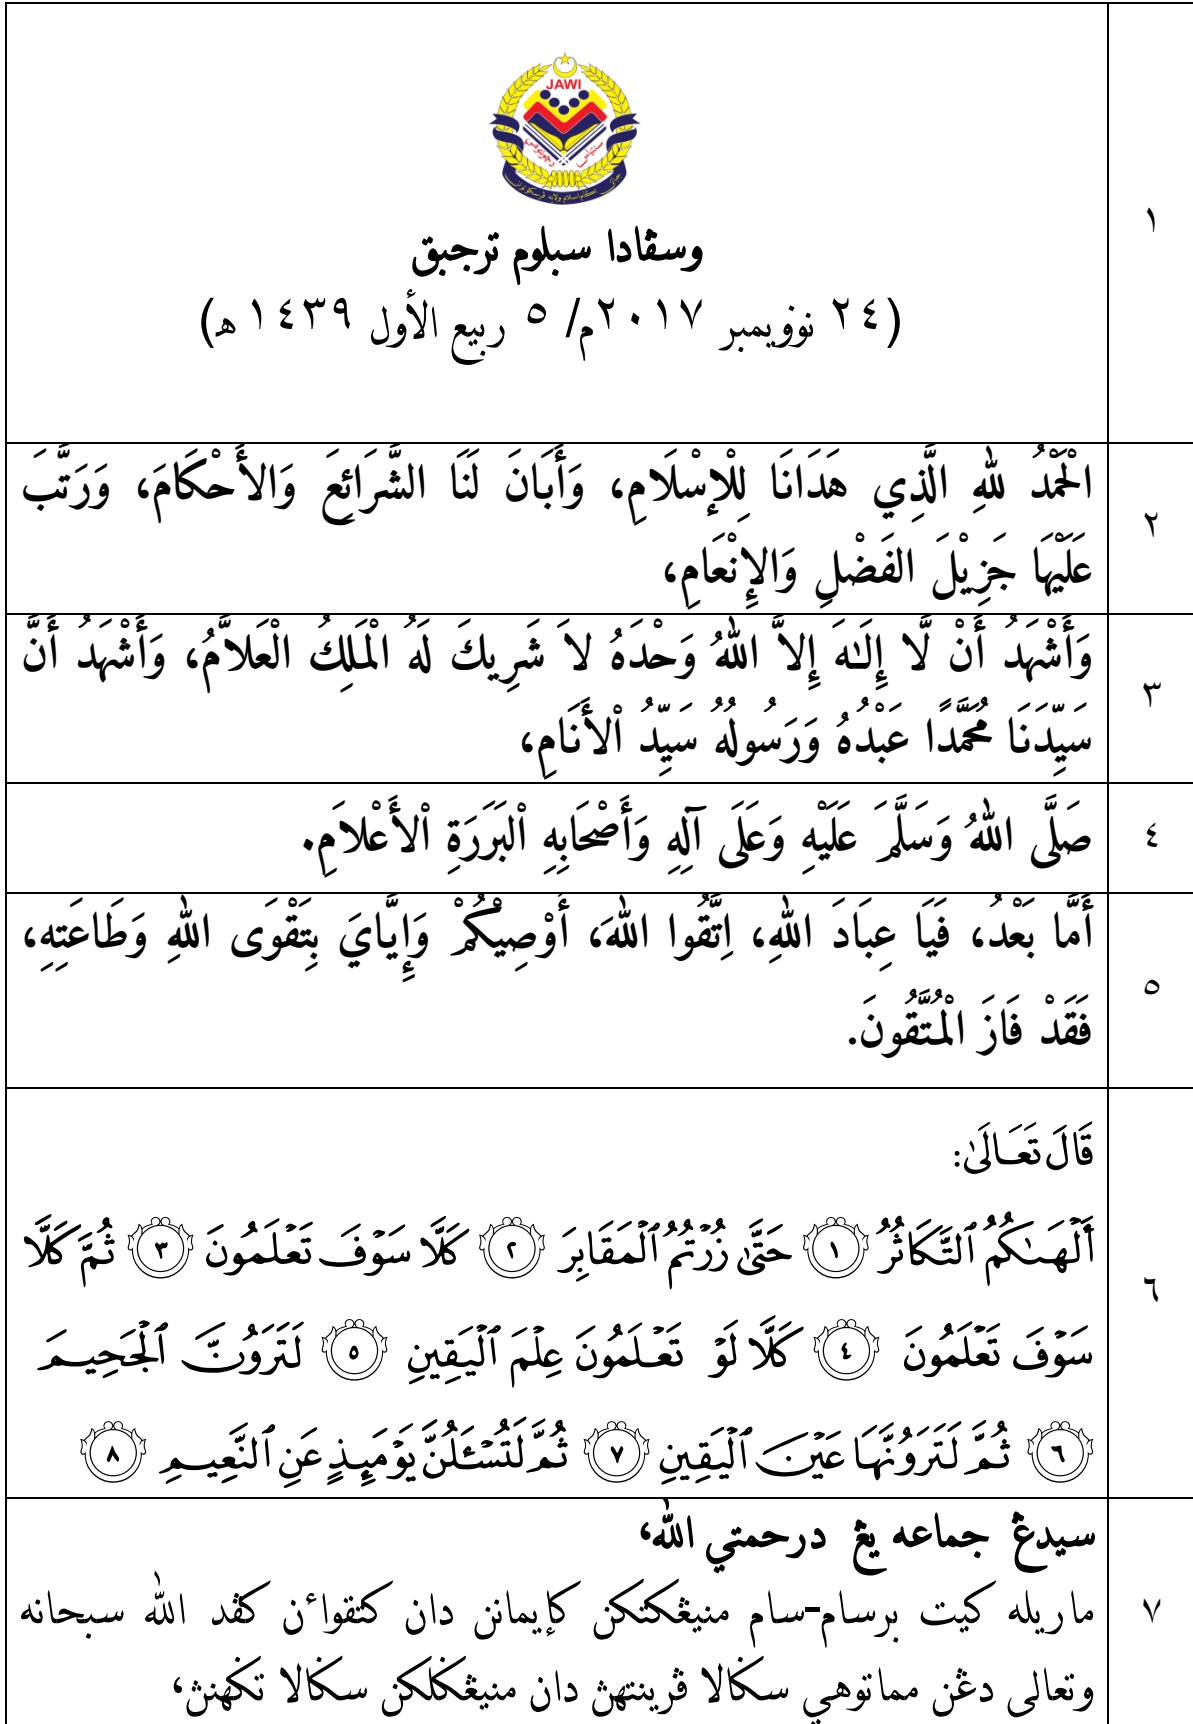 JAWI
١
وسڤادا سبلوم ترجبق
(٢٤ نوۏيمبر ٢٠١٧م/ ٥ ربيع الأول ١٤٣٩ ه)
٢
الْحَمْدُ للهِ الَّذِي هَدَانَا لِلْإِسْلَامِ، وَأَبَانَ لَنَا الشَّرَائِعَ وَالأَحْكَامَ، وَرَتَّبَ
عَلَيْهَا جَزِيْلَ الفَضْلِ وَالإِنْعَامِ،
٣
وَأَشْهَدُ أَنْ لَّا إِلَـٰهَ إِلاَّ اللهُ وَحْدَهُ لاَ شَرِيكَ لَهُ الْمَلِكُ الْعَلاَّمُ، وَأَشْهَدُ أَنَّ
سَيِّدَنَا مُحَمَّدًا عَبْدُهُ وَرَسُولُهُ سَيِّدُ اْلأَنَامِ،
٤
صَلَّى اللهُ وَسَلَّمَ عَلَيْهِ وَعَلَى آلِهِ وَأَصْحَابِهِ اْلبَرَرَةِ اْلأَعْلامِ.
٥
أَمَّا بَعْدُ، فَيَا عِبَادَ اللهِ، اِتَّقُوا اللهَ، أُوْصِيْكُمْ وَإِيَّايَ بِتَقْوَى اللهِ وَطَاعَتِهِ،
فَقَدْ فَازَ الْمُتَّقُونَ.
٦
قَالَ تَعَـالَىٰ:
أَلْهَىٰكُمُ ٱلتَّكَاثُرُ ١ حَتَّىٰ زُرْتُمُ ٱلْمَقَابِرَ ٢ كَلَّا سَوْفَ تَعْلَمُونَ ٣ ثُمَّ كَلَّا
سَوْفَ تَعْلَمُونَ ٤ كَلَّا لَوْ تَعْلَمُونَ عِلْمَ ٱلْيَقِينِ ٥ لَتَرَوُنَّ ٱلْجَحِيمَ
٦ ثُمَّ لَتَرَوُنَّهَا عَيْنَ ٱلْيَقِينِ ٧ ثُمَّ لَتُسْـَٔلُنَّ يَوْمَئِذٍ عَنِ ٱلنَّعِيمِ ٨
٧
سيدڠ جماعه يڠ درحمتي الله،
ماريله كيت برسام-سام منيڠكتكن كإيمانن دان كتقواءن كڤد الله سبحانه
وتعالى دڠن مماتوهي سڬالا ڤرينتهڽ دان منيڠڬلكن سڬالا تڬهنڽ،